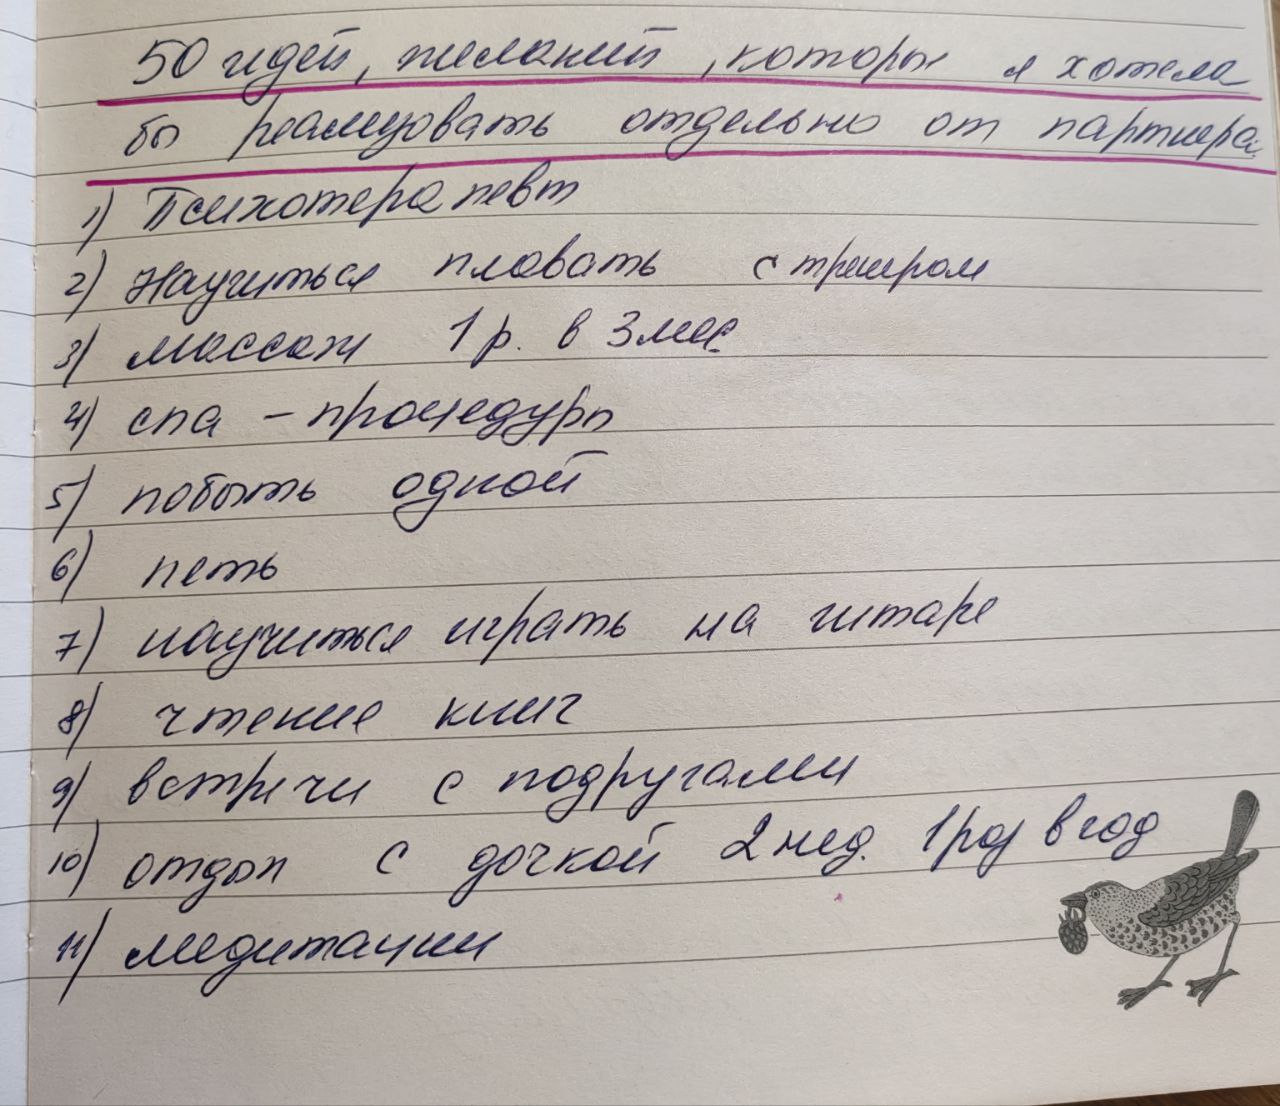 50 идей, желаний, которы я хотела
бы реализовать отдельно от партнера:
1) Психотерапевт
2) Научиться плавать с тренером
3) массаж 1 р. в 3 мес
4) спа - процедуры
5) побыть одной
6) петь
7) научиться играть на гитаре
8) чтение книг
9) встречи с подругами
10) отдых с дочкой 2 нед. 1 раз в год
11) медитации